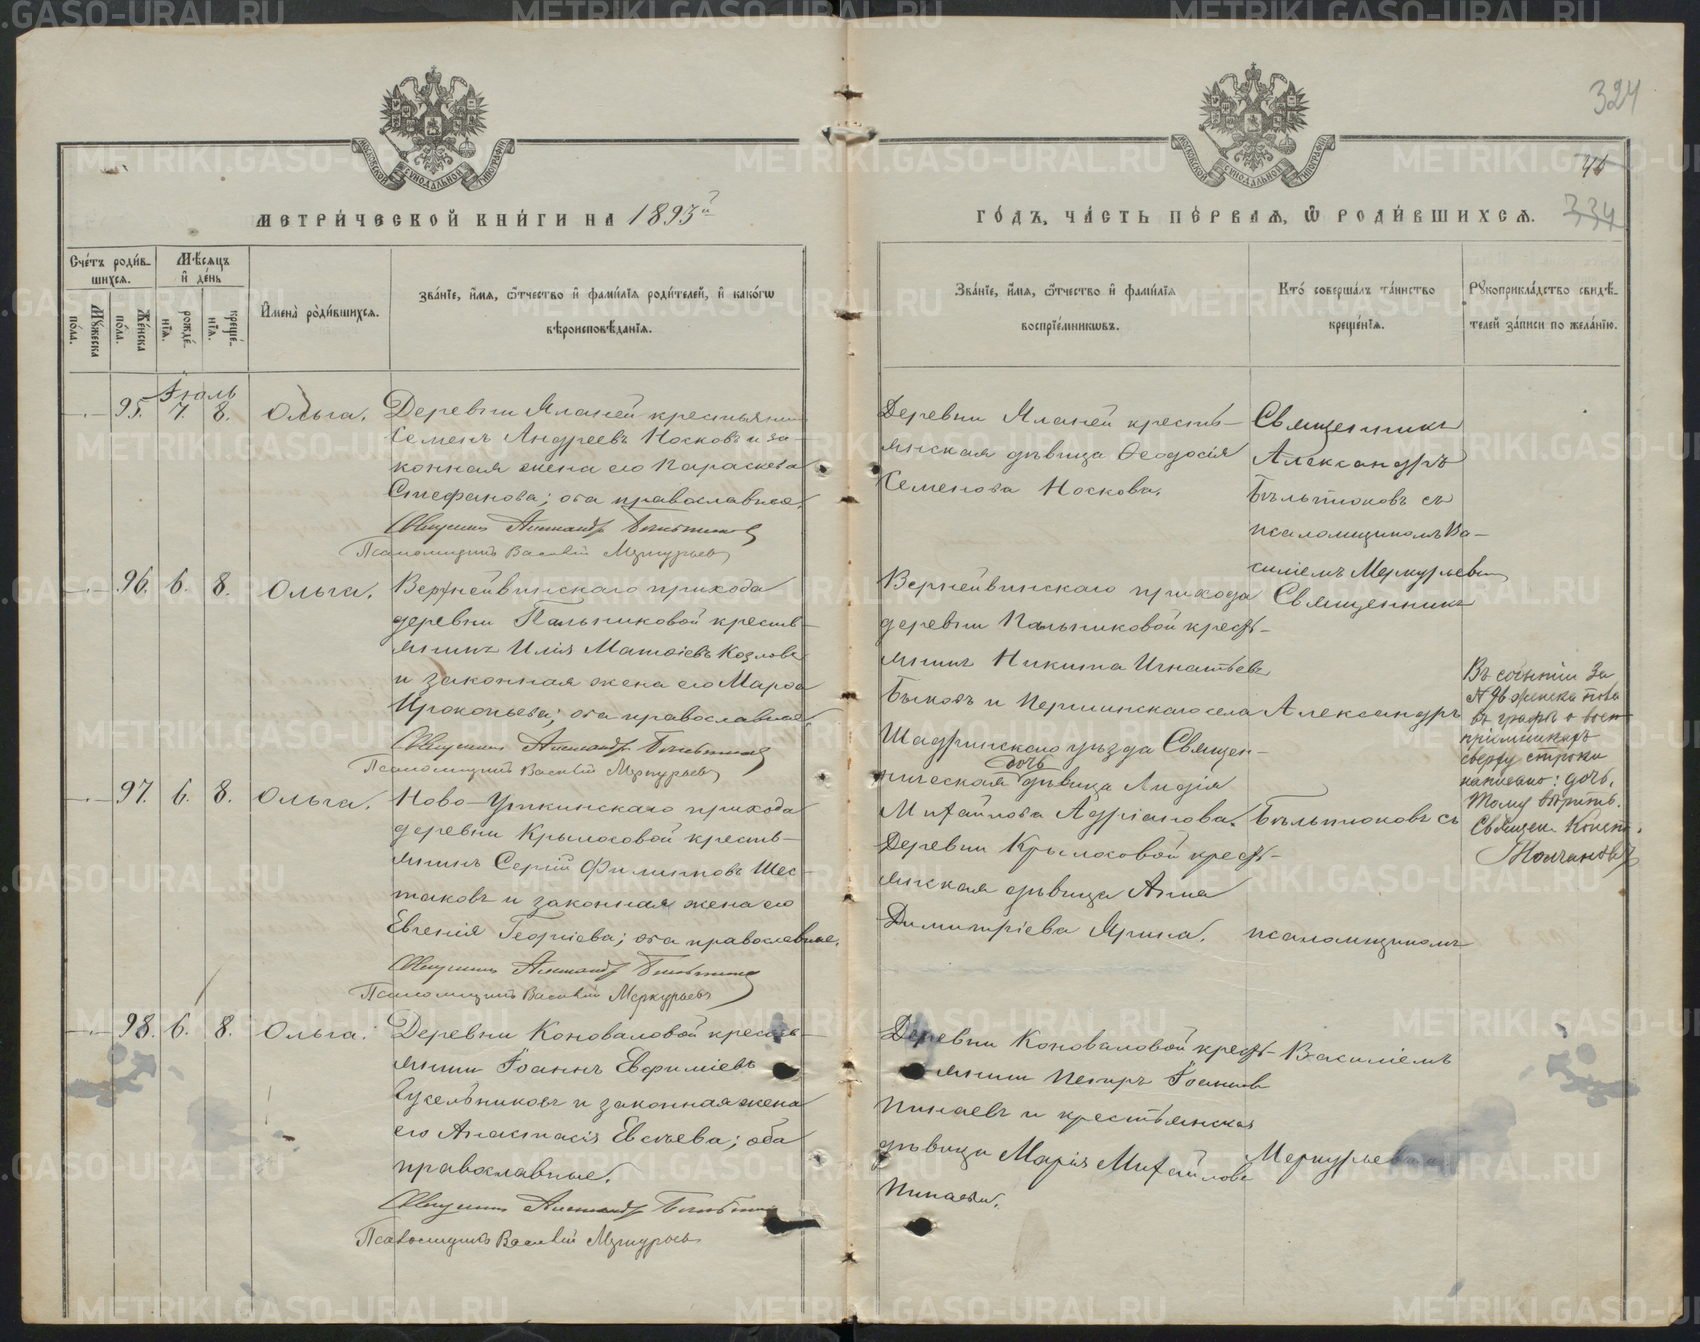 324
46
334
МЕТРИ́ЧЕСКОЙ КНИ́ГИ НА 1893й
ГО́ДЪ, ЧА́СТЬ ПЕ́РВАЯ, Ѿ РОДИ́ВШИХСЯ.
Сче́тъ роди́в-
шихся.
Мꙋ́жеска по́ла.
Же́нска по́ла.
Мѣ́сяцъ
и҆ де́нь
рожде́-
нїя.
креще́-
нїя.
И҆мена̀ роди́вшихся.
Зва́нїе, и҆́мя, ѻ҆́тчество и҆ фами́лїя роди́телей, и҆ како́гѡ
вѣроисповѣ́данїя.
Зва́нїе, и҆́мя, ѻ҆́тчество и҆ фами́лїя
воспрїе́мникѡвъ.
Кто̀ соверша́лъ та́инство
креще́нїя.
Рꙋкоприкла́дство свидѣ́-
телей за́писи по жела́нїю.
Іюль
95. 7. 8. Ольга.
Деревни Яланей крестьянинъ
Семенъ Андреевъ Носковъ и за-
конная жена его Параскева
Стефанова; оба православные.
Священникъ Александръ Бѣльтюковъ
Псаломщикъ Василій Меркурьевъ
Деревни Яланей кресть-
янская дѣвица Ѳеодосія
Семенова Носкова.
Священникъ
Александръ
Бѣльтюковъ съ
псаломщикомъ Ва-
силіемъ Меркурьевы
96. 6. 8. Ольга.
Верхнейвинскаго прихода
деревни Пальниковой кресть-
янинъ Илія Матѳіевъ Козловъ
и законная жена его Марѳа
Прокопьева; оба православные.
Священникъ Александръ Бѣльтюковъ
Псаломщикъ Василій Меркурьевъ
Верхнейвинскаго прихода
деревни Пальниковой кресть-
янинъ Никита Игнатьевъ
Быковъ и Першинскаго села
Шадринскаго уѣзда Священ-
дочь
ническая дѣвица Лидія
Михайлова Адріанова.
Священникъ
Александръ
Бѣльтюковъ съ
Въ
въ графѣ о восп-
пріемникахъ
сверху строки
написано: дочь,
тому вѣрить.
Священ. Конст.
Молчановъ
97. 6. 8. Ольга.
Ново-Уткинскаго прихода
деревни Крылосовой кресть-
янинъ Сергій Филипповъ Шес-
таковъ и законная жена его
Евгенія Георгіева; оба православные.
Священникъ Александръ Бѣльтюковъ
Псаломщикъ Василій Меркурьевъ
Деревни Крылосовой кресть-
янская дѣвица Анна
Димитріева Ярина.
псаломщикомъ
98. 6. 8. Ольга.
Деревни Коноваловой кресть-
янинъ Іоаннъ Евфиміевъ
Сусельниковъ и законная жена
его Анастасія Евсѣева; оба
православные.
Священникъ Александръ Бѣльтюковъ
Псаломщикъ Василій Меркурьевъ
Деревни Коноваловой кресть-
янинъ Петръ Іоанновъ
Пинаевъ и крестьянская
дѣвица Марія Михайлова
Пинаева.
Василіемъ
Меркурьевымъ